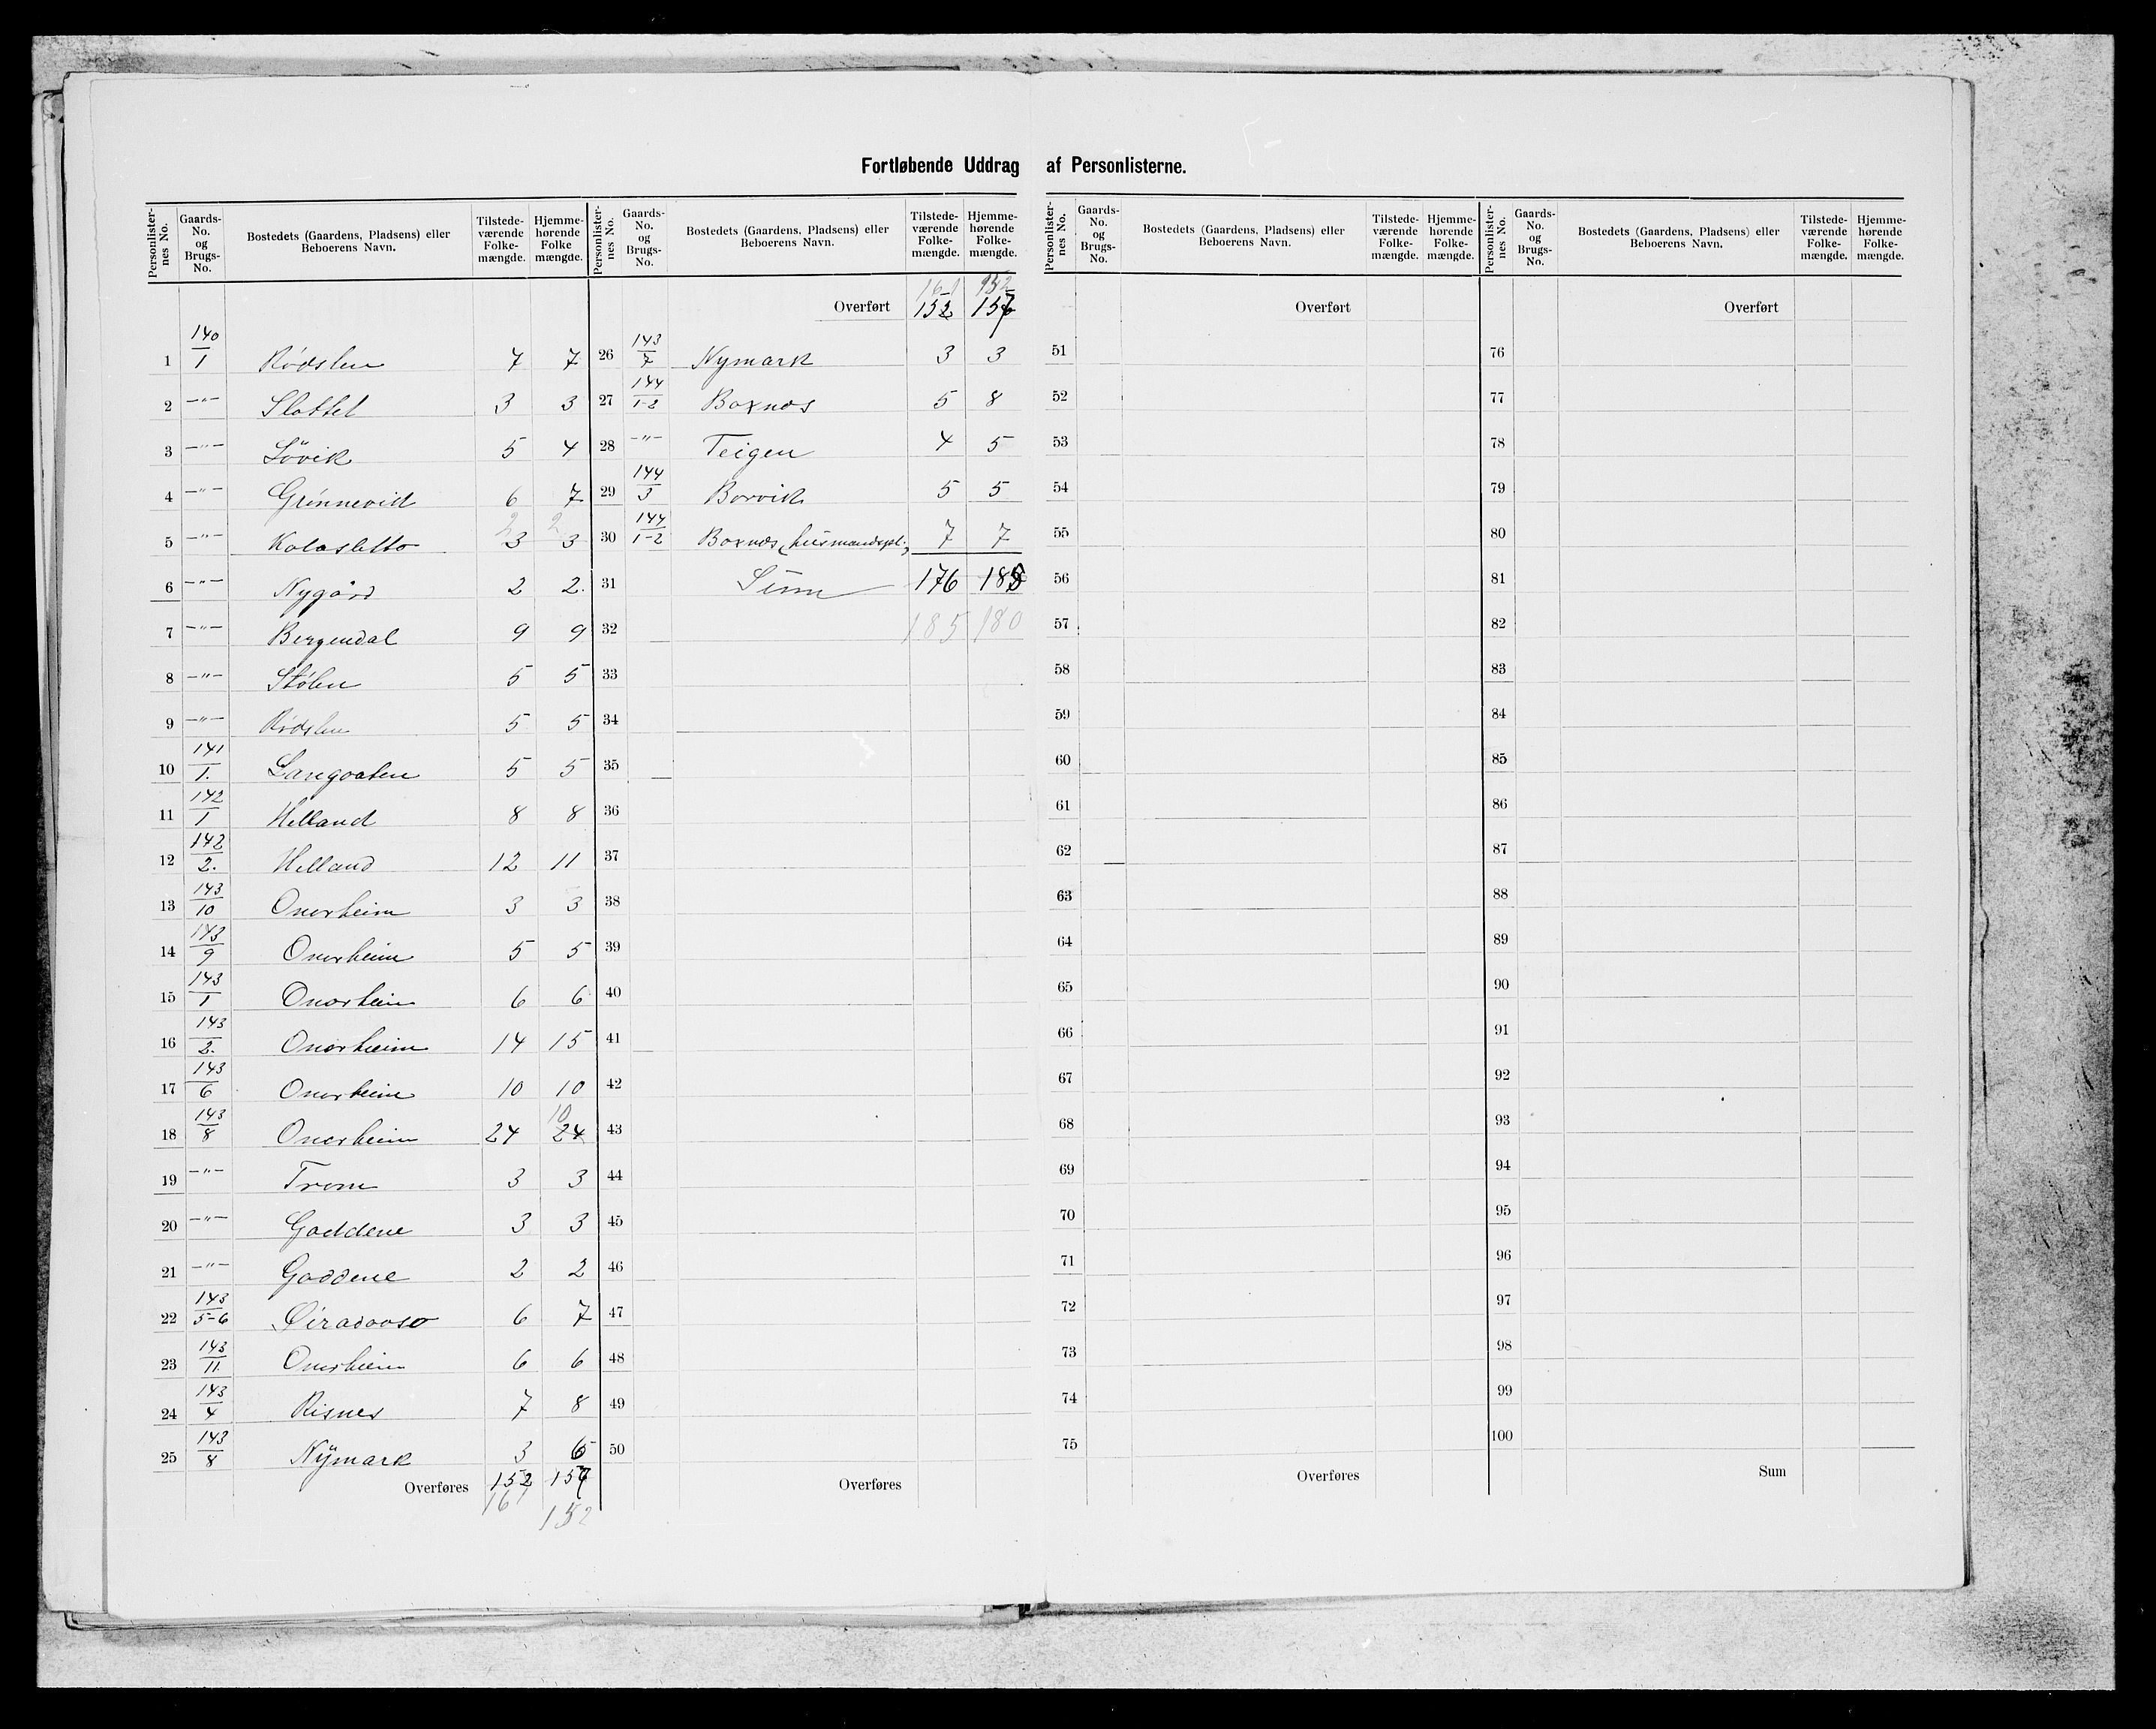 Fortløbende Uddrag af Personlisterne.
Personlister-nes No. | Gaards-No. og Brugs-No. | Bostedets (Gaardens, Pladsens) eller Beboerens Navn. | Tilstede-værende Folke-mængde. | Hjemme-hørende Folke mængde.
1 | 140/1 | Rødslen | 7 | 7
2 | —"— | Slottet | 3 | 3
3 | —"— | Lövik | 5 | 4
4 | —"— | Grønnevid | 6 | 7
5 | —"— | Kolasletto | 2 3 | 2 3
6 | —"— | Nygård | 2 | 2.
7 | —"— | Bergendal | 9 | 9
8 | —"— | Stølen | 5 | 5
9 | —"— | Rødslen | 5 | 5
10 | 141/1. | Langgaten | 5 | 5
11 | 142/1 | Helland | 8 | 8
12 | 142/2. | Helland | 12 | 11
13 | 143/10 | Onarheim | 3 | 3
14 | 143/9 | Onarheim | 5 | 5
15 | 143/1 | Onarheim | 6 | 6
16 | 143/2. | Onarheim | 14 | 15
17 | 143/6 | Onarheim | 10 | 10
18 | 143/8 | Onarheim | 24 | 10 24
19 | —"— | Trom | 3 | 3
20 | —"— | Gaddene | 3 | 3
21 | —"— | Gaddene | 2 | 2
22 | 143/5-6 | 6 | 7
23 | 143/11 | Onarheim | 6 | 6
24 | 143/4 | Risnes | 7 | 8
25 | 143/8 | Nÿmark | 3
Overføres | 152 | 157
161 | 152
Personlister-nes No. | Gaards-No. og Brugs-No. | Bostedets (Gaardens, Pladsens) eller Beboerens Navn. | Tilstede-værende Folke-mængde. | Hjemme-hørende Folke-mængde.
161 | 152
Overført | 152 | 157
26 | 143/7 | Nymark | 3 | 3
27 | 144/1-2 | Boxnes | 5 | 8
28 | —"— | Teigen | 4 | 5
29 | 144/3 | Borvik | 5 | 5
30 | 144/1-2 | Boxnes (husmandspl.) | 7 | 7
31 | Sum | 176 | 185
32 | 185 | 180
33
34
35
36
37
38
39
40
41
42
43
44
45
46
47
48
49
50
Overføres
Personlister-nes No. | Gaards-No. og Brugs-No. | Bostedets (Gaardens, Pladsens) eller Beboerens Navn. | Tilstede-værende Folke-mængde. | Hjemme-hørende Folke-mængde.
Overført
51
52
53
54
55
56
57
58
59
60
61
62
63
64
65
66
67
68
69
70
71
72
73
74
75
Overføres
Personlister-nes No. | Gaards-No. og Brugs-No. | Bostedets (Gaardens, Pladsens) eller Beboerens Navn. | Tilstede-værende Folke-mængde. | Hjemme-hørende Folke-mængde.
Overført
76
77
78
79
80
81
82
83
84
85
86
87
88
89
90
91
92
93
94
95
96
97
98
99
100
Sum